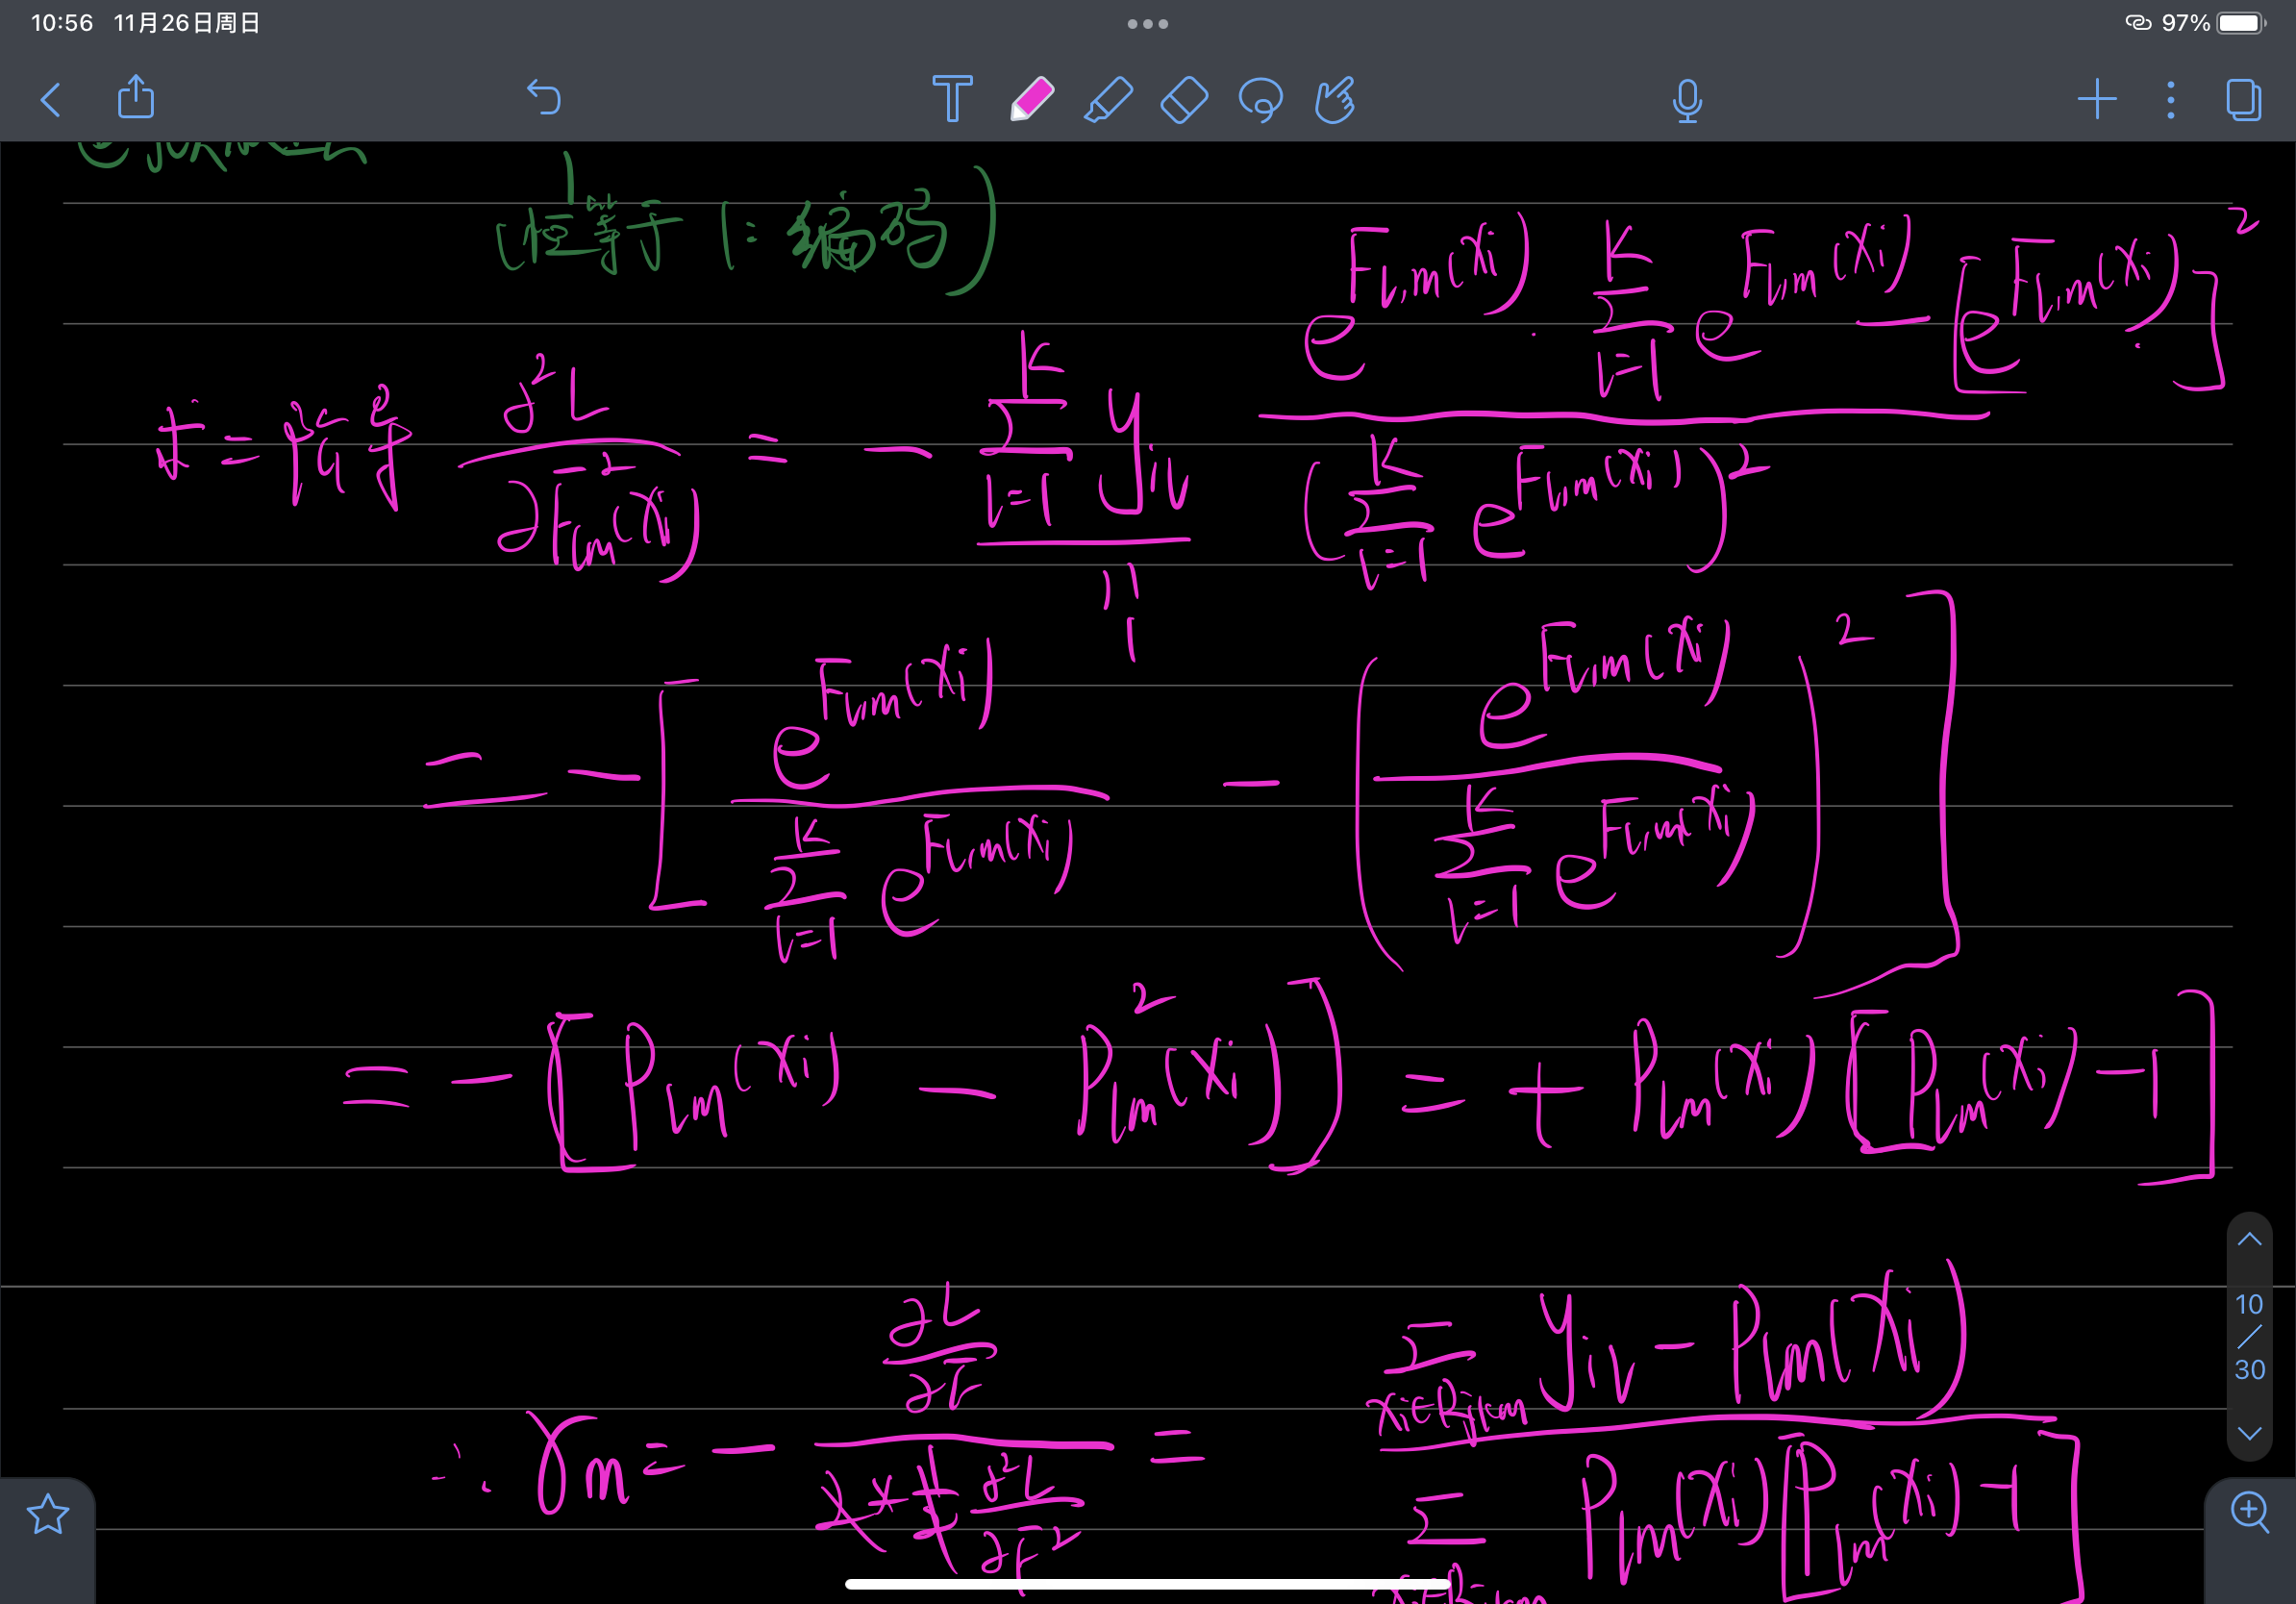 10:56 11月26日周日 97%
(恒等于1:编码)
二阶导 ∂²L/∂F²_{l,m}(x_i) = - Σ_{l=1}^{K} y_{il} (e^{F_{l,m}(x_i)} · Σ_{l=1}^{K} e^{F_{l,m}(x_i)} - [e^{F_{l,m}(x_i)}]²) / (Σ_{l=1}^{K} e^{F_{l,m}(x_i)})²
"
1
= - [ e^{F_{l,m}(x_i)} / Σ_{l=1}^{K} e^{F_{l,m}(x_i)} - ( e^{F_{l,m}(x_i)} / Σ_{l=1}^{K} e^{F_{l,m}(x_i)} )² ]
= - [P_{l,m}(x_i) - P²_{l,m}(x_i)] = + P_{l,m}(x_i) [P_{l,m}(x_i) - 1]
∴ γ_m = - (∂L/∂F) / (∂²L/∂F²) = Σ_{x_i∈R_{jlm}} y_{il} - P_{l,m}(x_i) / Σ P_{l,m}(x_i) [P_{l,m}(x_i) - 1]
10
/
30